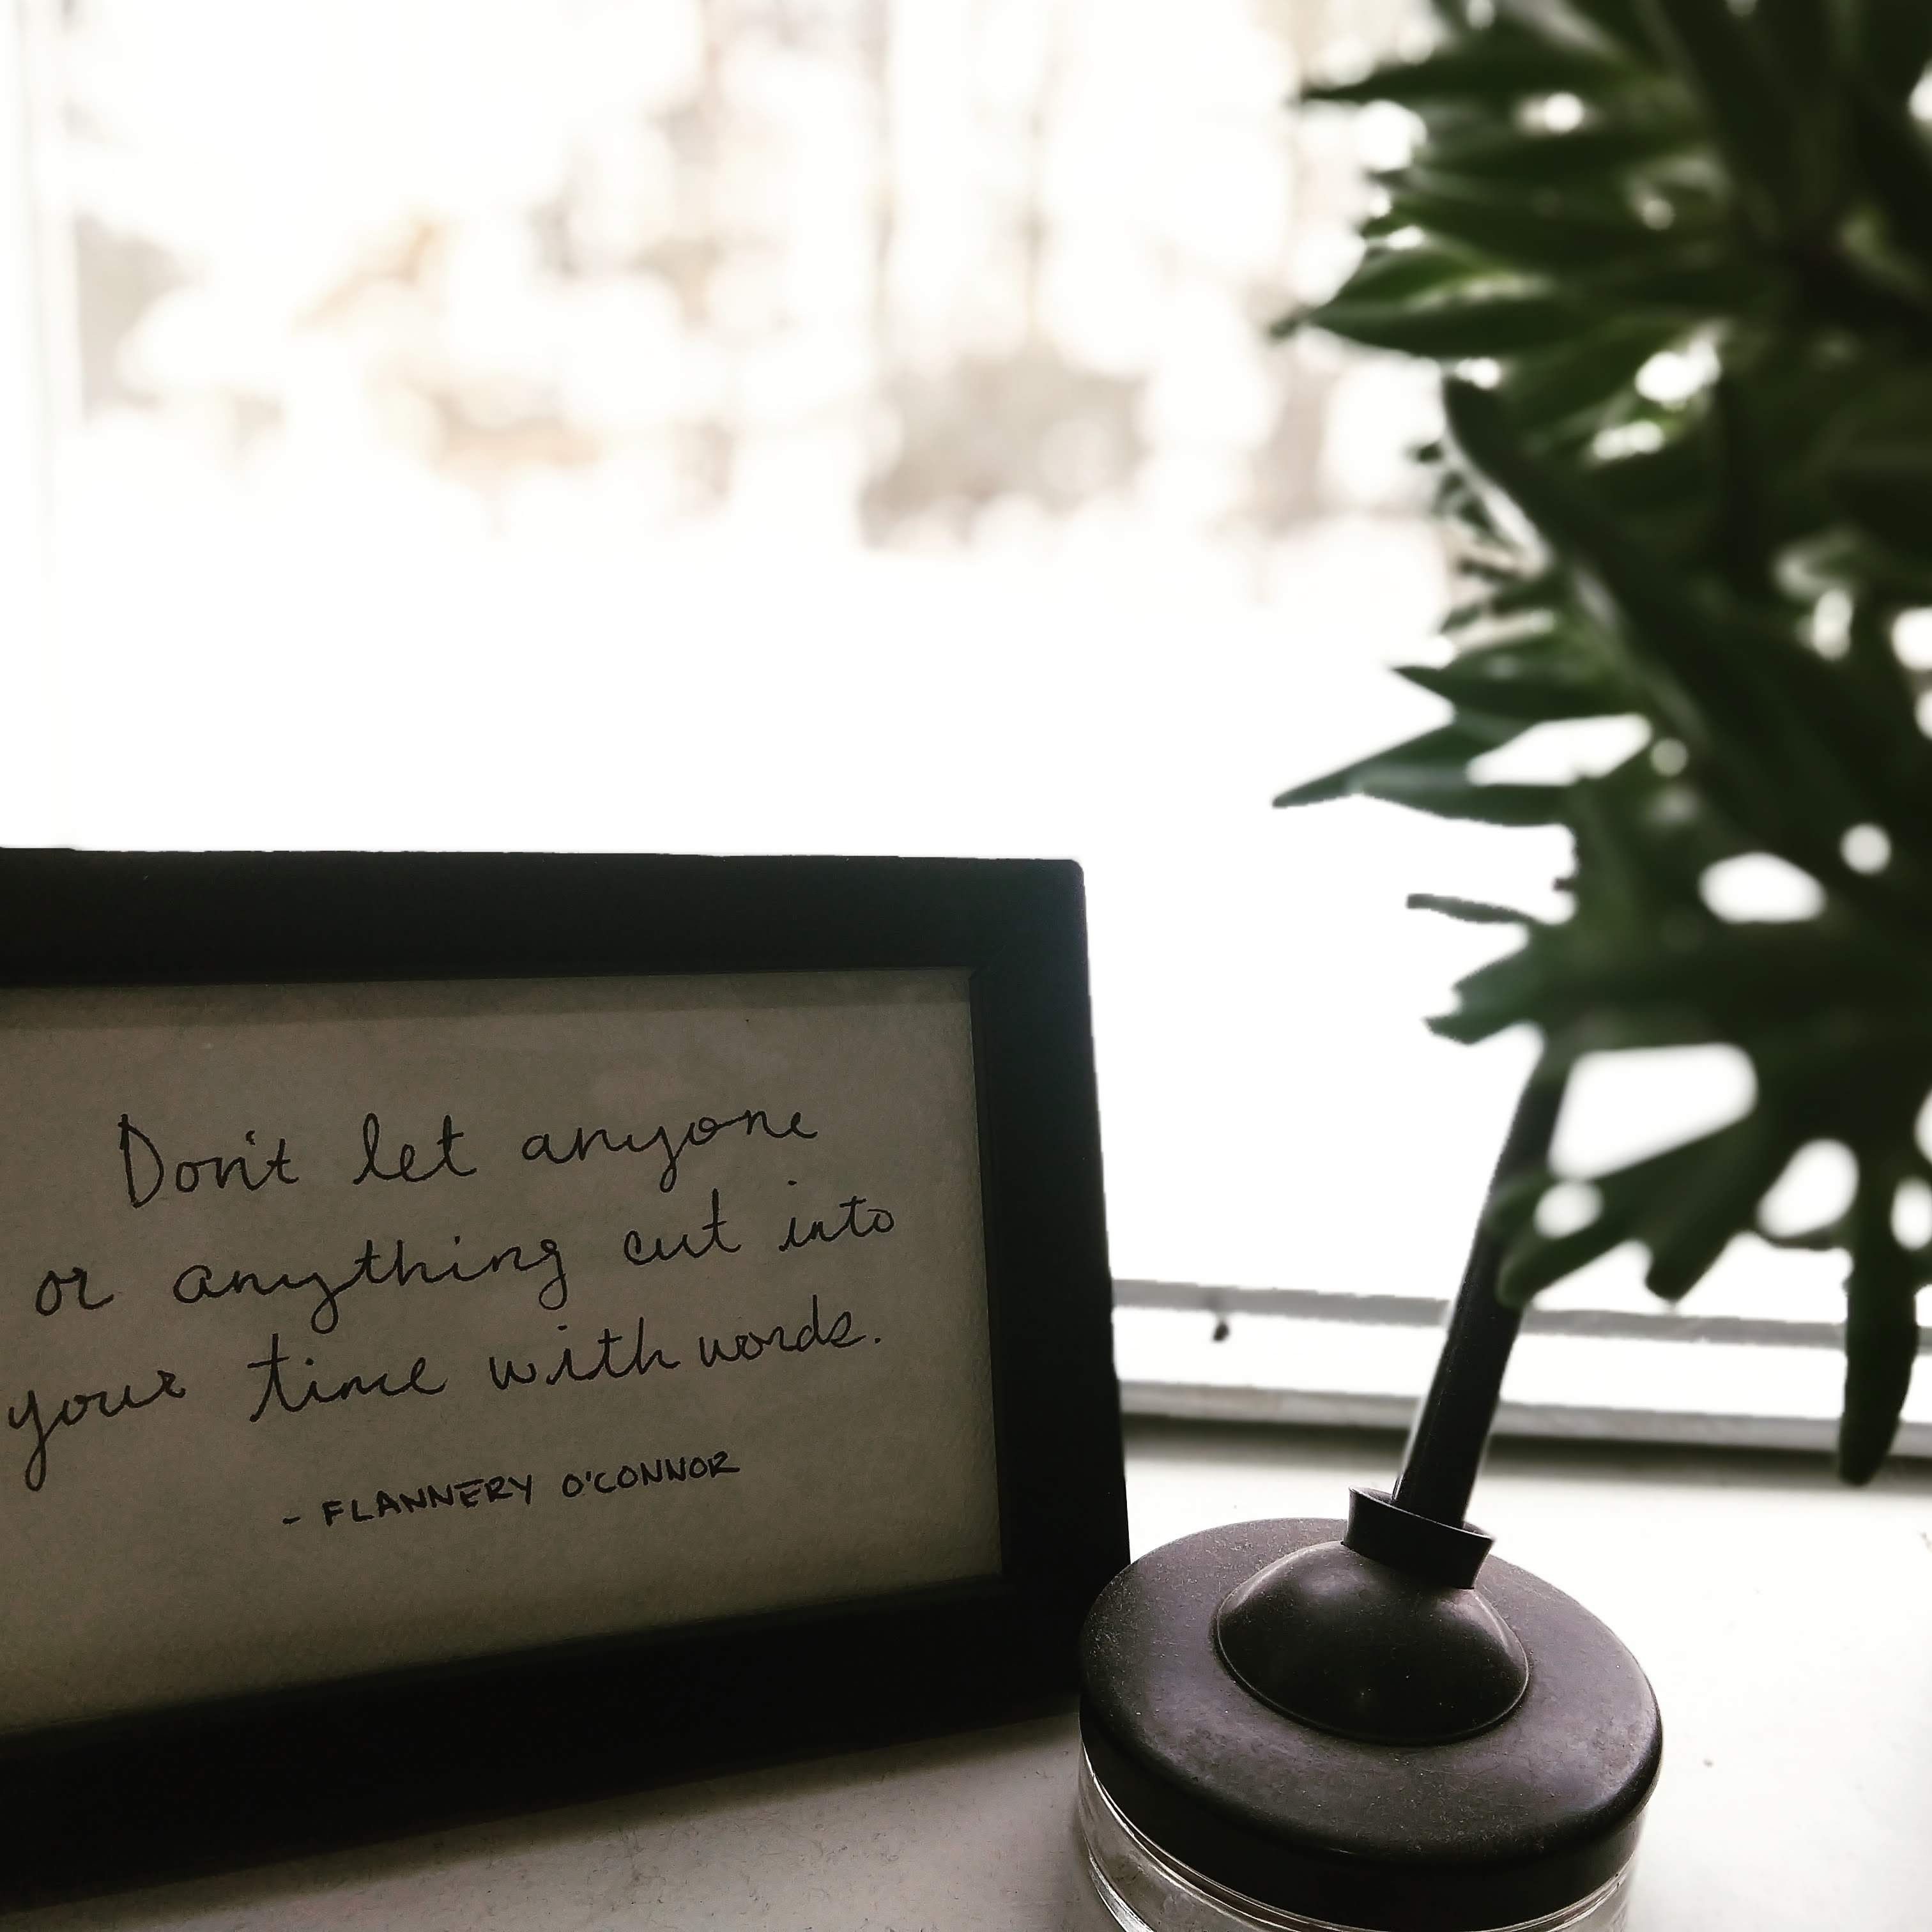 Don't let anyone
or anything cut into
your time with words.
- FLANNERY O'CONNOR